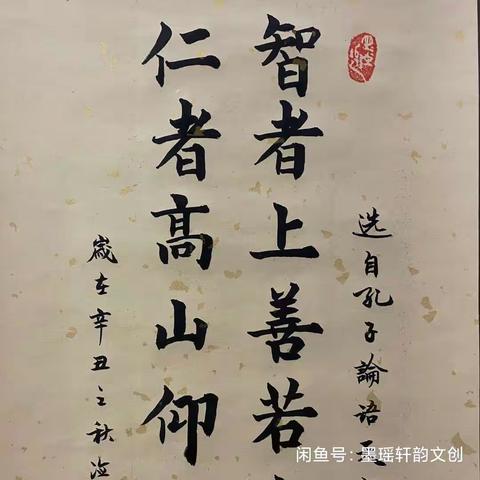 选自孔子論语
智者上善若
仁者高山仰
歲在辛丑之秋
闲鱼号:墨瑶轩韵文创